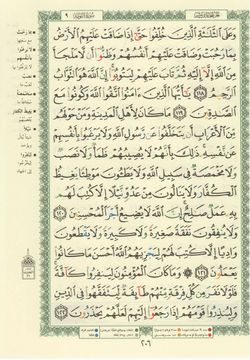 وَعَلَى ٱلثَّلَـٰثَةِ ٱلَّذِينَ خُلِّفُوا۟ حَتَّىٰٓ إِذَا ضَاقَتْ عَلَيْهِمُ ٱلْأَرْضُ
بِمَا رَحُبَتْ وَضَاقَتْ عَلَيْهِمْ أَنفُسُهُمْ وَظَنُّوٓا۟ أَن لَّا مَلْجَأَ
مِنَ ٱللَّهِ إِلَّآ إِلَيْهِ ثُمَّ تَابَ عَلَيْهِمْ لِيَتُوبُوٓا۟ إِنَّ ٱللَّهَ هُوَ ٱلتَّوَّابُ
ٱلرَّحِيمُ ١١٨ يَـٰٓأَيُّهَا ٱلَّذِينَ ءَامَنُوا۟ ٱتَّقُوا۟ ٱللَّهَ وَكُونُوا۟ مَعَ
ٱلصَّـٰدِقِينَ ١١٩ مَا كَانَ لِأَهْلِ ٱلْمَدِينَةِ وَمَنْ حَوْلَهُم
مِّنَ ٱلْأَعْرَابِ أَن يَتَخَلَّفُوا۟ عَن رَّسُولِ ٱللَّهِ وَلَا يَرْغَبُوا۟ بِأَنفُسِهِمْ
عَن نَّفْسِهِۦ ذَٰلِكَ بِأَنَّهُمْ لَا يُصِيبُهُمْ ظَمَأٌ وَلَا نَصَبٌ
وَلَا مَخْمَصَةٌ فِى سَبِيلِ ٱللَّهِ وَلَا يَطَـُٔونَ مَوْطِئًا يَغِيظُ
ٱلْكُفَّارَ وَلَا يَنَالُونَ مِنْ عَدُوٍّ نَّيْلًا إِلَّا كُتِبَ لَهُم
بِهِۦ عَمَلٌ صَـٰلِحٌ إِنَّ ٱللَّهَ لَا يُضِيعُ أَجْرَ ٱلْمُحْسِنِينَ ١٢٠
وَلَا يُنفِقُونَ نَفَقَةً صَغِيرَةً وَلَا كَبِيرَةً وَلَا يَقْطَعُونَ
وَادِيًا إِلَّا كُتِبَ لَهُمْ لِيَجْزِيَهُمُ ٱللَّهُ أَحْسَنَ مَا كَانُوا۟
يَعْمَلُونَ ١٢١ وَمَا كَانَ ٱلْمُؤْمِنُونَ لِيَنفِرُوا۟ كَآفَّةً
فَلَوْلَا نَفَرَ مِن كُلِّ فِرْقَةٍ مِّنْهُمْ طَآئِفَةٌ لِّيَتَفَقَّهُوا۟ فِى ٱلدِّينِ
وَلِيُنذِرُوا۟ قَوْمَهُمْ إِذَا رَجَعُوٓا۟ إِلَيْهِمْ لَعَلَّهُمْ يَحْذَرُونَ ١٢٢
٢٠٦